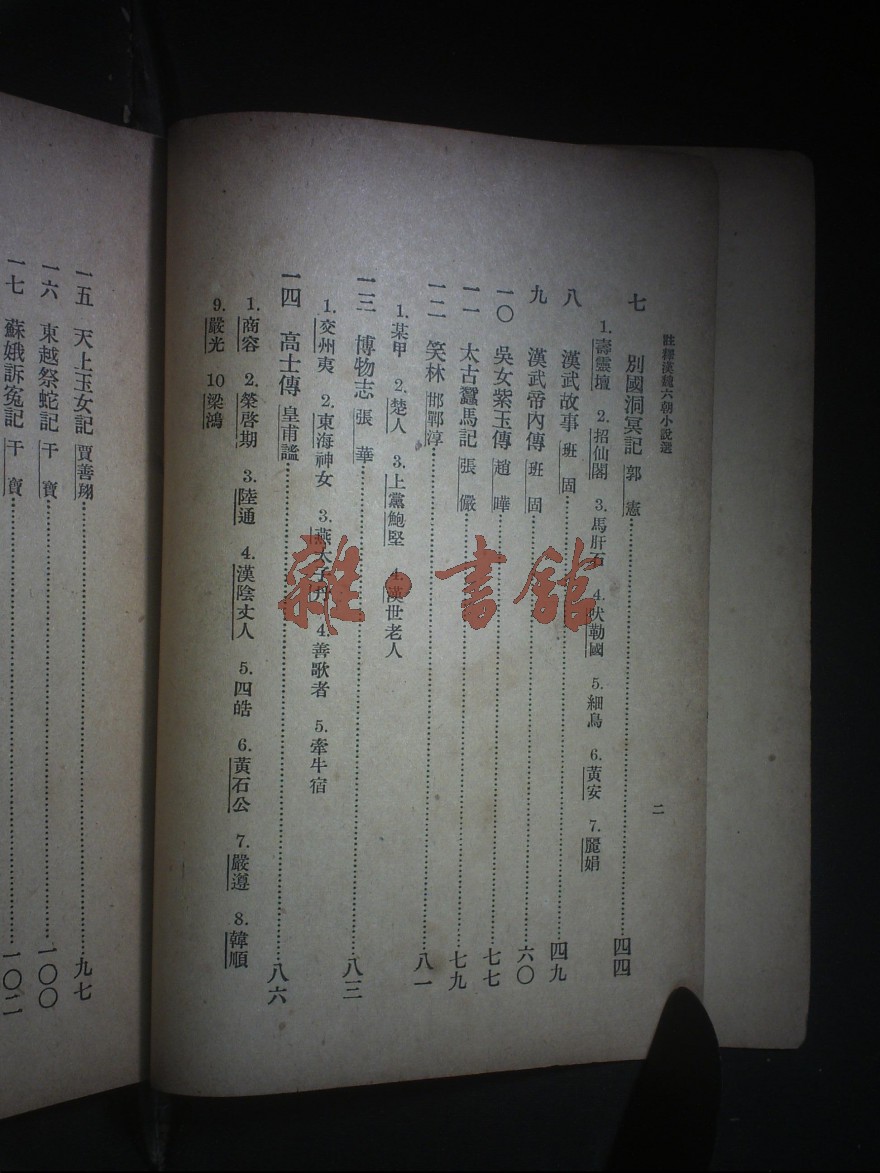 註釋漢魏六朝小說選
二
七 別國洞冥記 郭憲 四四
1.壽靈壇 2.招仙閣 3.馬肝石 4.吠勒國 5.細鳥 6.黃安 7.麗娟
八 漢武故事 班固 四九
九 漢武帝內傳 班固 六〇
一〇 吳女紫玉傳 趙曄 七七
一一 太古蠶馬記 張儼 七九
一二 笑林 邯鄲淳 八一
1.某甲 2.楚人 3.上黨鮑堅 4.漢世老人
一三 博物志 張華 八三
1.交州夷 2.東海神女 3.燕太子丹 4.善歌者 5.牽牛宿
一四 高士傳 皇甫謐 八六
1.商容 2.榮啓期 3.陸通 4.漢陰丈人 5.四皓 6.黃石公 7.嚴遵 8.韓順
9.嚴光 10梁鴻
一五 天上玉女記 賈善翔 九七
一六 東越祭蛇記 干寶 一〇〇
一七 蘇娥訴冤記 干寶 一〇二
雜·書館